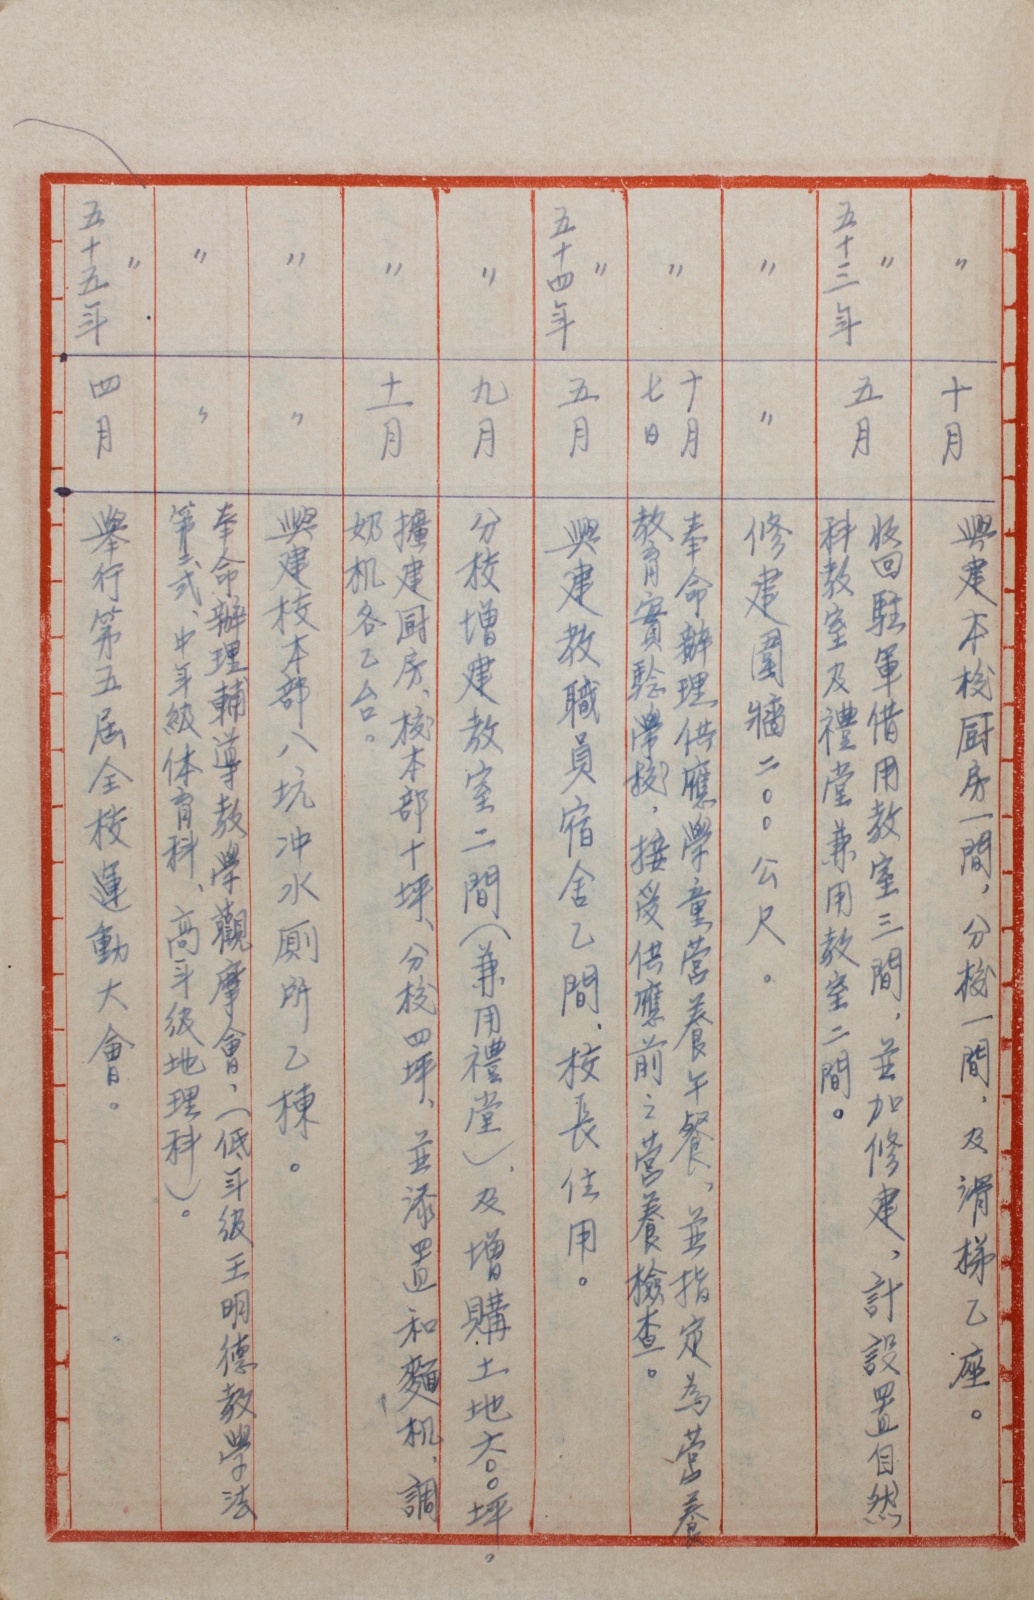 〃
十月
興建本校厨房一間，分校一間，及滑梯乙座。
五十三年
〃
五月
收回駐軍借用教室三間，並加修建，計設置自然
科教室及禮堂兼用教室二間。
〃
〃
修建圍牆二〇〇公尺。
〃
十月
七日
奉命辦理供應學童營養午餐，並指定為營養
教育實驗學校，接受供應前之營養檢查。
五十四年
〃
五月
興建教職員宿舍乙間，校長住用。
〃
九月
分校增建教室二間（兼用禮堂），及增購土地六〇〇坪。
〃
十一月
擴建厨房、校本部十坪、分校四坪、並添置和麵机、調
奶机各乙台。
〃
〃
興建校本部八坑冲水厠所乙棟。
〃
〃
奉命辦理輔導教學觀摩會，（低年級王明德教學法
第弍、中年級体育科、高年級地理科）。
五十五年
〃
四月
舉行第五屆全校運動大會。